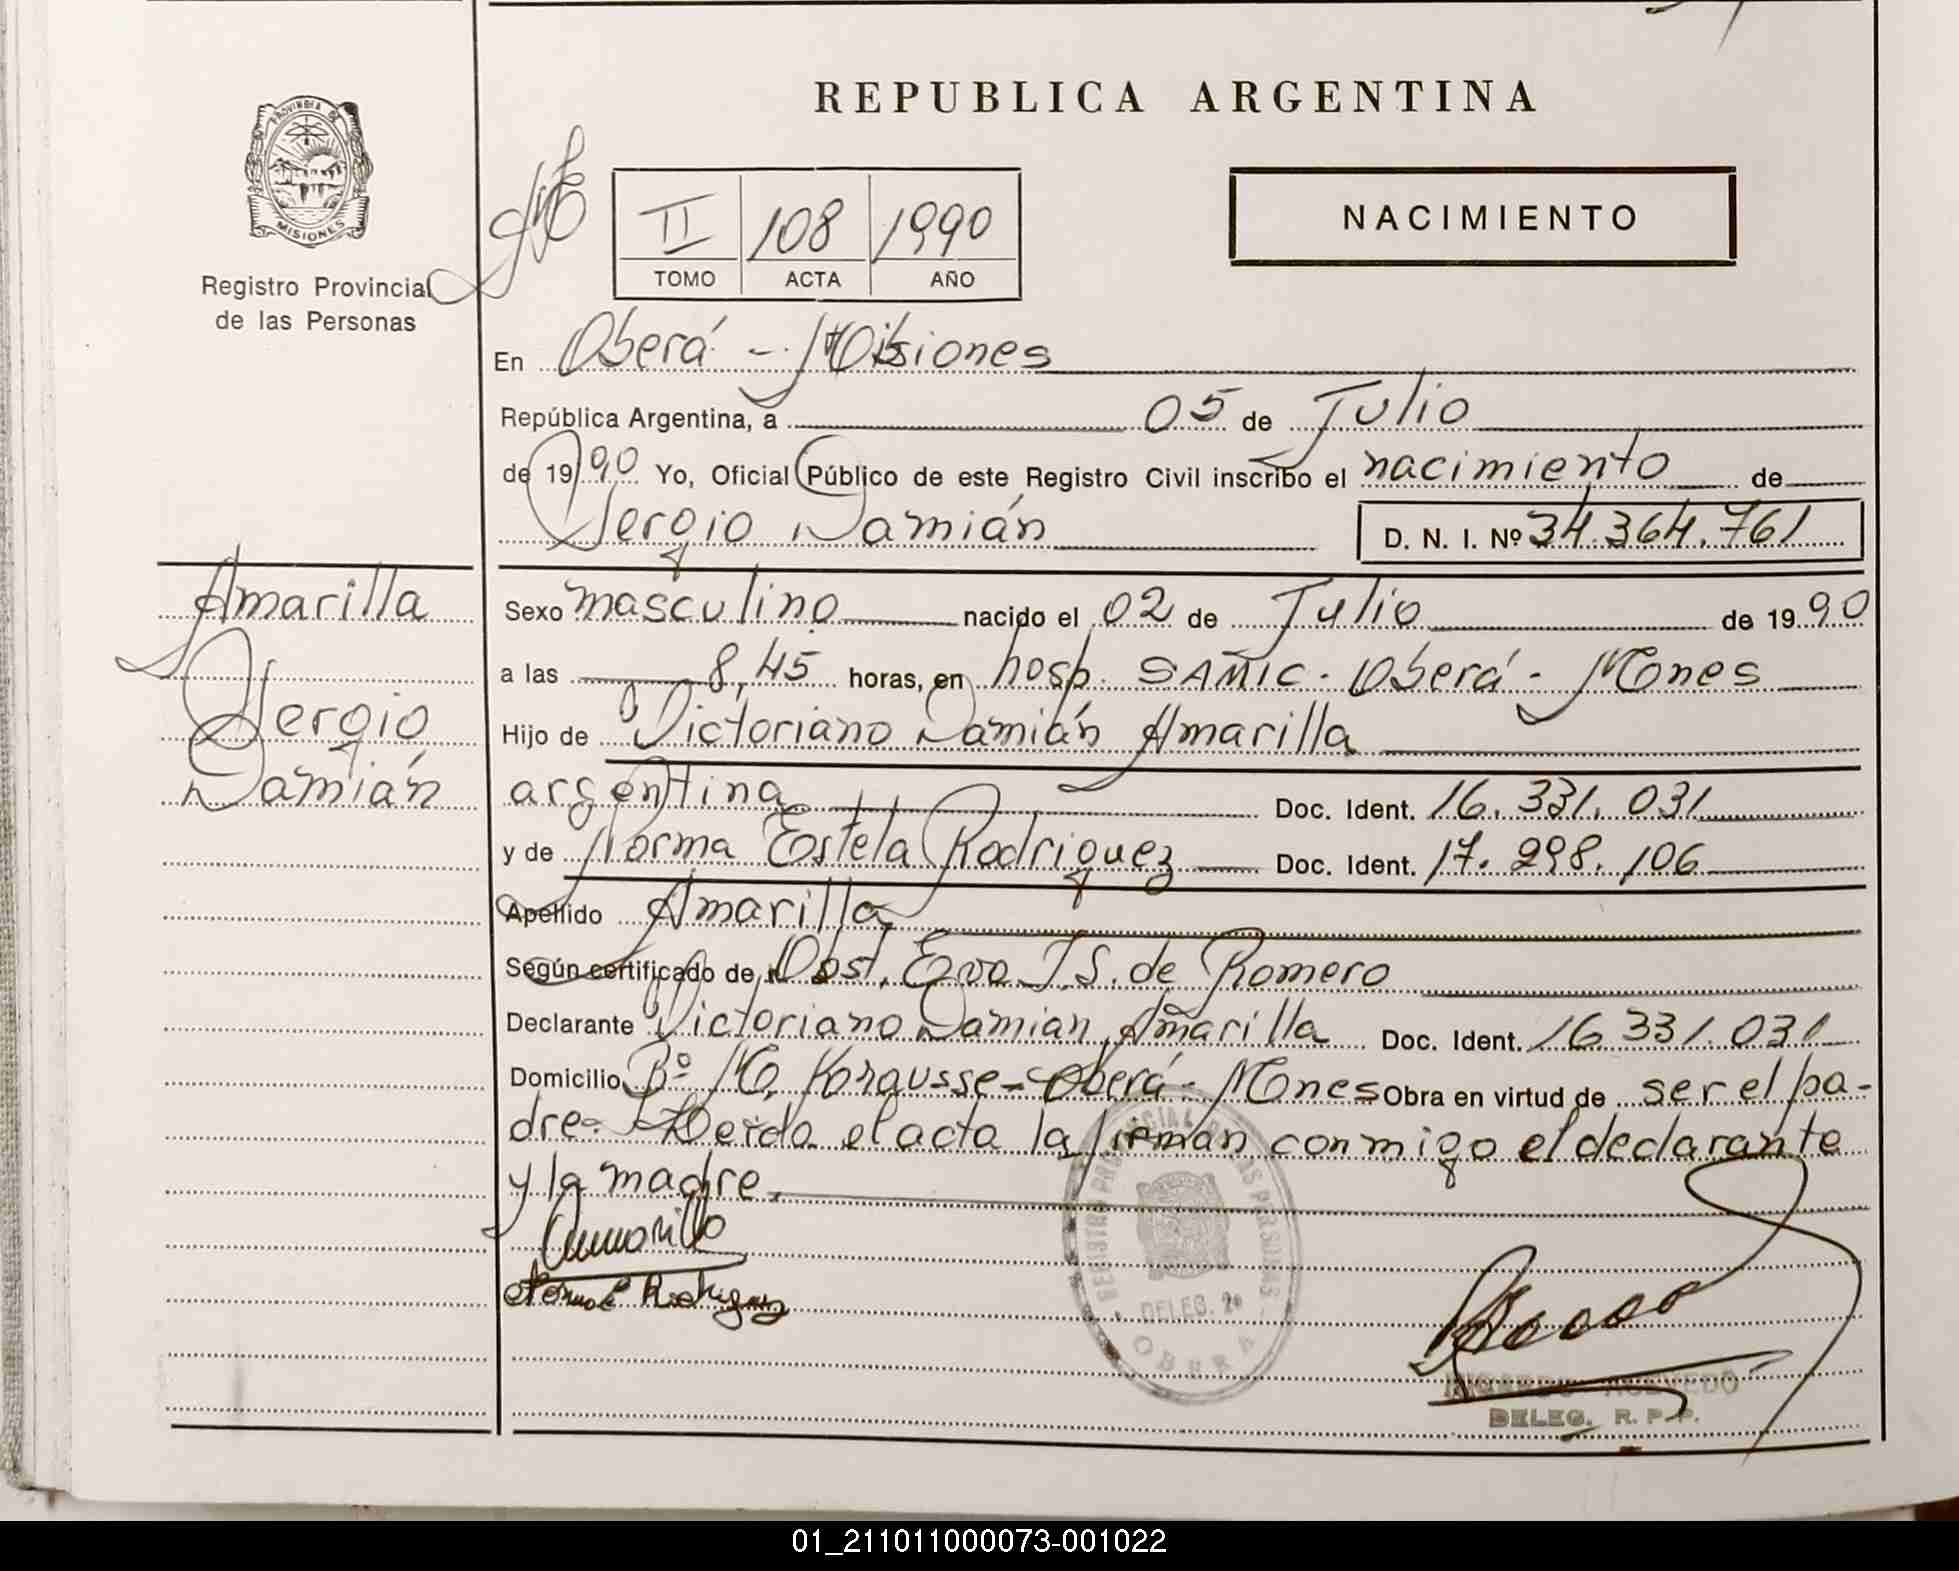 REPUBLICA ARGENTINA
PROVINCIA DE
MISIONES
Registro Provincial
de las Personas
II 108 1990
TOMO ACTA AÑO
NACIMIENTO
En Oberá - Misiones
República Argentina, a 05 de Julio
de 1990 Yo, Oficial Público de este Registro Civil inscribo el nacimiento de
Sergio Damián D. N. I. Nº 34.364.761
Amarilla
Sergio
Damián
Sexo masculino nacido el 02 de Julio de 1990
a las 8,45 horas, en hosp. SAMIC - Oberá - Mones
Hijo de Victoriano Damián Amarilla
argentina Doc. Ident. 16.331.031
y de Norma Estela Rodriguez Doc. Ident. 17.298.106
Apellido Amarilla
Según certificado de Obst. Eva J.S. de Romero
Declarante Victoriano Damian Amarilla Doc. Ident. 16.331.031
Domicilio Bº M. Krausse - Oberá - Mones Obra en virtud de ser el pa-
dre. Leida el acta la firman conmigo el declarante
y la madre.
Amarilla
Norma E Rodriguez
REGISTRO PROVINCIAL DE LAS PERSONAS
DELEG. 2º
OBERA
ACEVEDO
DELEG. R. P. P.
01_211011000073-001022